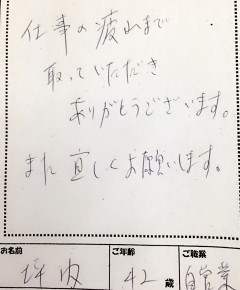 仕事の疲れまで
取っていただき
ありがとうございます。
また宜しくお願いします。
お名前 坪内
ご年齢 42 歳
ご職業 自営業